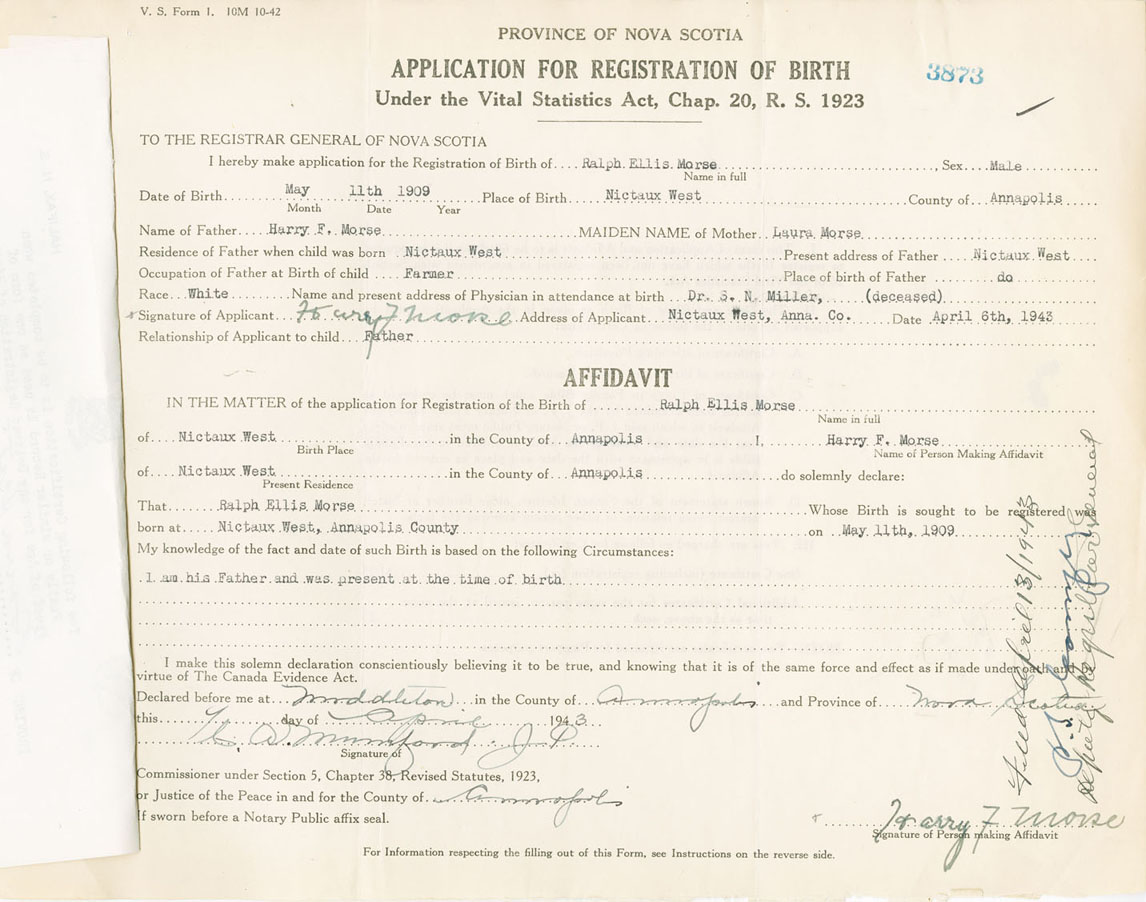 V. S. Form 1. 10M 10-42
PROVINCE OF NOVA SCOTIA
APPLICATION FOR REGISTRATION OF BIRTH
3873
Under the Vital Statistics Act, Chap. 20, R. S. 1923
TO THE REGISTRAR GENERAL OF NOVA SCOTIA
I hereby make application for the Registration of Birth of.... Ralph Ellis Morse, Sex...Male
Name in full
Date of Birth May 11th 1909 Place of Birth Nictaux West County of Annapolis
Month Date Year
Name of Father Harry F. Morse MAIDEN NAME of Mother Laura Morse
Residence of Father when child was born Nictaux West Present address of Father Nictaux West
Occupation of Father at Birth of child Farmer Place of birth of Father do
Race White Name and present address of Physician in attendance at birth Dr. S. N. Miller, (deceased)
Signature of Applicant Harry F Morse Address of Applicant Nictaux West, Anna. Co. Date April 6th, 1943
Relationship of Applicant to child Father
AFFIDAVIT
IN THE MATTER of the application for Registration of the Birth of Ralph Ellis Morse
Name in full
of Nictaux West in the County of Annapolis I, Harry F. Morse
Birth Place Name of Person Making Affidavit
of Nictaux West in the County of Annapolis do solemnly declare:
Present Residence
That Ralph Ellis Morse Whose Birth is sought to be registered was
born at Nictaux West, Annapolis County on May 11th, 1909
My knowledge of the fact and date of such Birth is based on the following Circumstances:
I am his Father and was present at the time of birth
I make this solemn declaration conscientiously believing it to be true, and knowing that it is of the same force and effect as if made under oath and
virtue of The Canada Evidence Act.
Declared before me at Middleton in the County of Annapolis and Province of Nova Scotia
this day of April 1943
Mumford J P.
Signature of
Commissioner under Section 5, Chapter 38, Revised Statutes, 1923,
or Justice of the Peace in and for the County of Annapolis
If sworn before a Notary Public affix seal.
Harry F Morse
Signature of Person making Affidavit
For Information respecting the filling out of this Form, see Instructions on the reverse side.
Filed April 13/1943
Deputy Registrar General